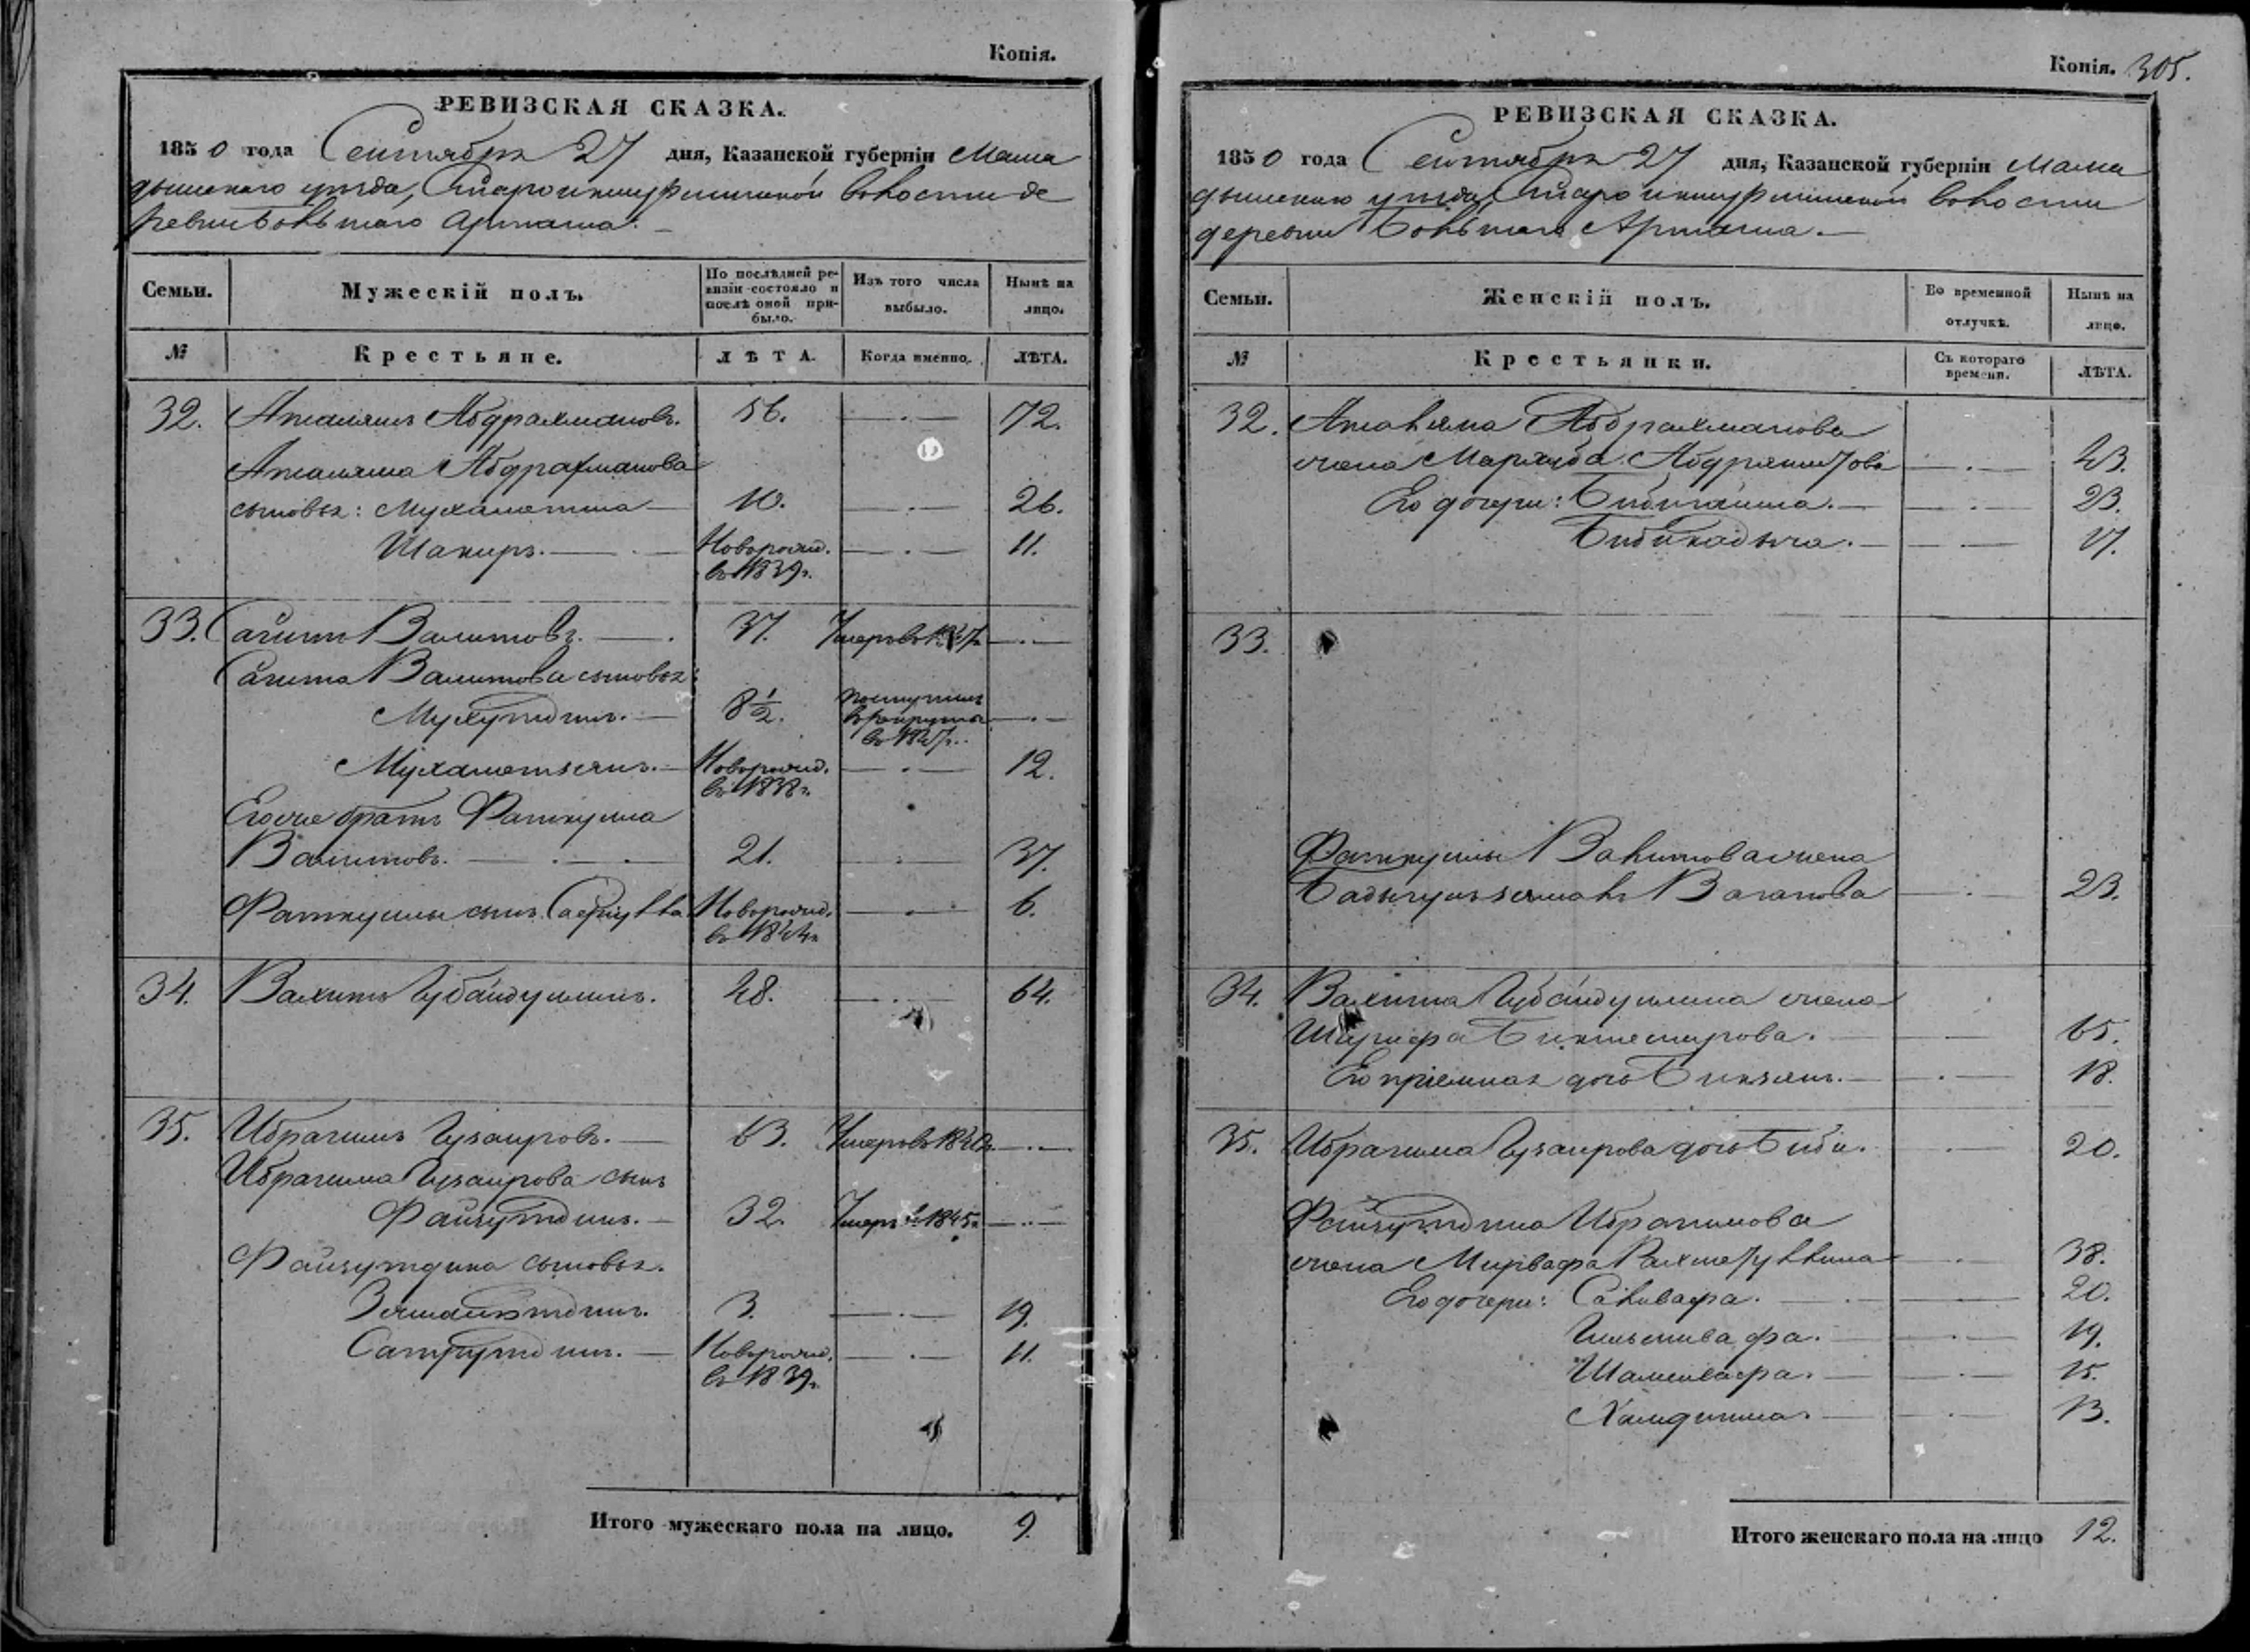 Копія.
РЕВИЗСКАЯ СКАЗКА.
1850 года Сентября 27 дня, Казанской губерніи Мама
дышскаго уѣзда, волости де
ревни Большаго Арташа.
Семьи.
Мужескій полъ.
По послѣдней ре-
визіи состояло и
послѣ оной при-
было.
Изъ того числа
выбыло.
Нынѣ на
лицо.
№
Крестьяне.
ЛѢТА.
Когда именно.
ЛѢТА.
32. Абдрахмановъ. 56. 72.
Абдрахманова
сыновья: Мухаметша 10. 26.
Шакиръ. Новорожд. 11.
въ 1839г.
33. Сагитъ Валитовъ. 37. Умеръ въ 1847г.
Сагита Валитова сыновья:
Мухутдинъ. 8½. поступилъ
въ рекруты
въ 1847г.
Мухаметзянъ. Новорожд. 12.
въ 1838г.
Его же братъ Фаткулла
Валитовъ. 21. 37.
Фаткуллы сынъ Новорожд. 6.
въ 1844г.
34. Вахитъ Губайдуллинъ. 48. 64.
35. Ибрагимъ Гузаировъ. 63. Умеръ въ
Ибрагима Гузаирова сынъ
Файзутдинъ. 32. Умеръ въ 1845г.
Файзутдина сыновья.
3. 19.
Новорожд. 11.
въ 1839г.
Итого мужескаго пола на лицо. 9.
Копія. 305.
РЕВИЗСКАЯ СКАЗКА.
1850 года Сентября 27 дня, Казанской губерніи Мама
дышскаго уѣзда, волости
деревни Большаго Арташа.
Семьи.
Женскій полъ.
Во временной
отлучкѣ.
Нынѣ на
лицо.
№
Крестьянки.
Съ котораго
времени.
ЛѢТА.
32. Абдрахманова
жена 43.
Его дочери: 23.
17.
33.
Фаткуллы Валитова жена
Ваганова 23.
34. Вахита Губайдуллина жена
Шарифа Биктемирова. 65.
Его пріемная дочь 18.
35. Ибрагима Гузаирова дочь Биби. 20.
Файзутдина Ибрагимова
жена 38.
Его дочери: Саливафа. 20.
19.
Шамсивафа. 15.
13.
Итого женскаго пола на лицо 12.